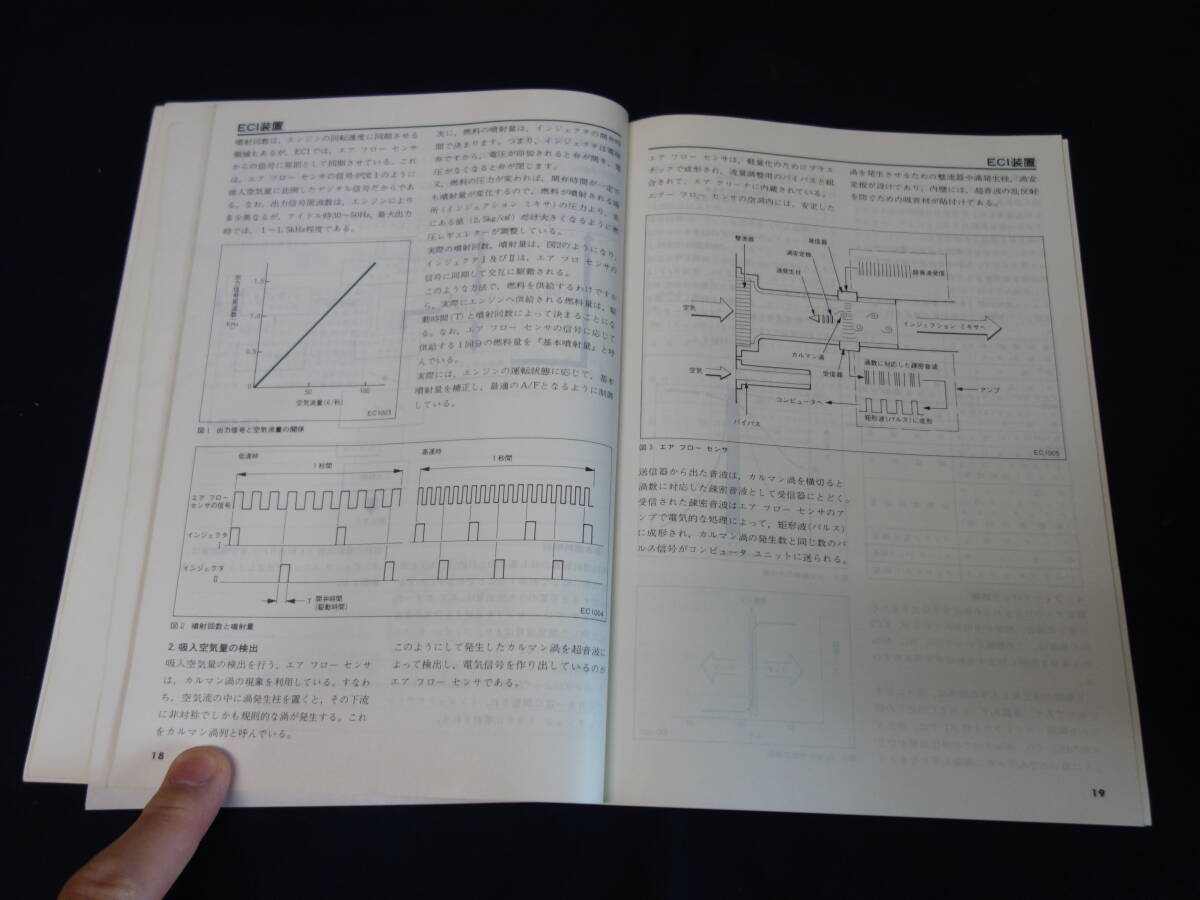 ECI装置
噴射回数は、エンジンの回転速度に同期させる
機種もあるが、ECIでは、エア フロー センサ
からの信号に原則として同期させている。これ
は、エア フロー センサの信号が図1のように
吸入空気量に比例したデジタル信号だからであ
る。なお、出力信号周波数は、エンジンにより
多少異なるが、アイドル時30～50Hz, 最大出力
時では、1～1.5kHz程度である。
出力信号周波数
(KHz)
1.5
1.0
0.5
0
50
100
空気流量(ℓ/秒)
EC1003
図1 出力信号と空気流量の関係
次に、燃料の噴射量は、インジェクタの開弁時
間で決まります。つまり、インジェクタは電磁
弁ですから、電圧が印加されると弁が開き、電
圧がなくなると弁が閉じます。
又、燃料の圧力が変われば、開弁時間が一定で
も噴射量が変化するので、燃料が噴射される場
所(インジェクション ミキサ)の圧力より、常
にある値 (2.5kg/cm²) だけ大きくなるように燃
圧レギュレターが調整している。
実際の噴射回数, 噴射量は、図2のようになり、
インジェクタⅠ及びⅡは、エア フロ センサの
信号に同期して交互に駆動される。
このような方法で、燃料を供給するわけですか
ら、実際にエンジンへ供給される燃料量は、駆
動時間(T)と噴射回数によって決まることにな
る。なお、エア フロー センサの信号に応じて
供給する1回分の燃料量を『基本噴射量』と呼
んでいる。
実際には、エンジンの運転状態に応じて、基本
噴射量を補正し、最適のA/Fとなるように制御
している。
低速時
1秒間
高速時
1秒間
エア フロー
センサの信号
インジェクタ
Ⅰ
インジェクタ
Ⅱ
T
開弁時間
(駆動時間)
EC1004
図2 噴射回数と噴射量
2. 吸入空気量の検出
吸入空気量の検出を行う、エア フロー センサ
は、カルマン渦の現象を利用している。すなわ
ち、空気流の中に渦発生柱を置くと、その下流
に非対称でしかも規則的な渦が発生する。これ
をカルマン渦列と呼んでいる。
このようにして発生したカルマン渦を超音波に
よって検出し、電気信号を作り出しているのが
エア フロー センサである。
18
ECI装置
エア フロー センサは、軽量化のためにプラス
チックで成形され、流量調整用のバイパスと組
合されて、エア クリーナに内蔵されている。
エアー フロー センサの空洞内には、安定した
渦を発生させるための整流器や渦発生柱、渦安
定板が設けてあり、内壁には、超音波の乱反射
を防ぐための吸音材が貼付けてある。
整流器
発信器
渦安定板
渦発生柱
疎音波発信
空気
インジェクション ミキサへ
カルマン渦
受信器
渦数に対応した疎密音波
空気
アンプ
コンピュータへ
矩形波(パルス)に成形
バイパス
EC1005
図3 エア フロー センサ
送信器から出た音波は、カルマン渦を横切ると
渦数に対応した疎密音波として受信器にとどく。
受信された疎密音波はエア フロー センサのア
ンプで電気的な処理によって、矩形波(パルス)
に成形され、カルマン渦の発生数と同じ数のパ
ルス信号がコンピュータ ユニットに送られる。
19